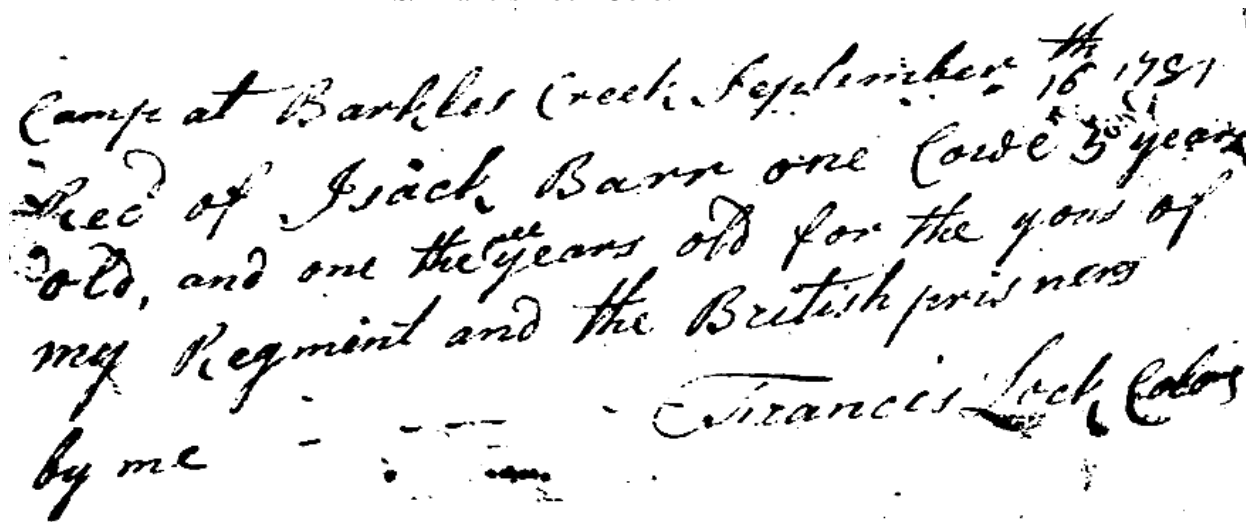 Camp at Barkles Creek September 16th 1781
Recd of Isack Barr one Cowe 5 years
old, and one three years old for the yous of
my Regmint and the British prisners
by me Francis Lock Colo